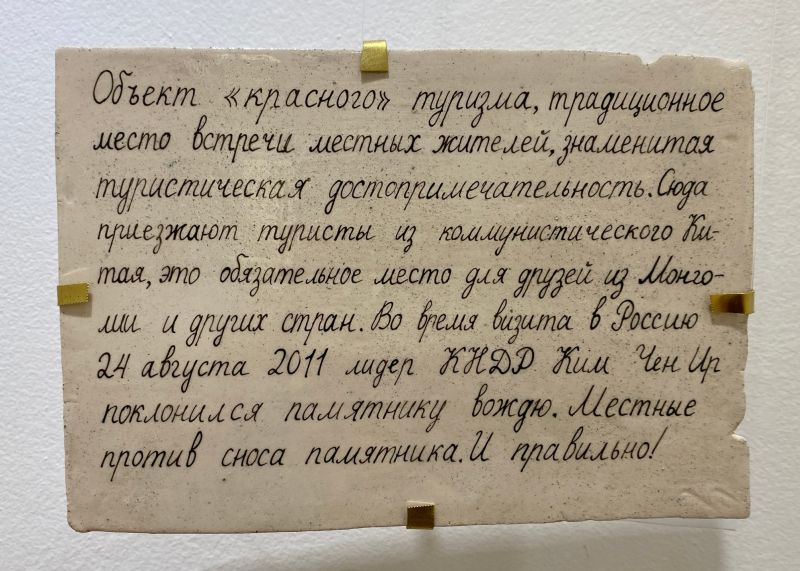 Объект «красного» туризма, традиционное
место встречи местных жителей, знаменитая
туристическая достопримечательность. Сюда
приезжают туристы из коммунистического Ки-
тая, это обязательное место для друзей из Монго-
лии и других стран. Во время визита в Россию
24 августа 2011 лидер КНДР Ким Чен Ир
поклонился памятнику вождю. Местные
против сноса памятника. И правильно!